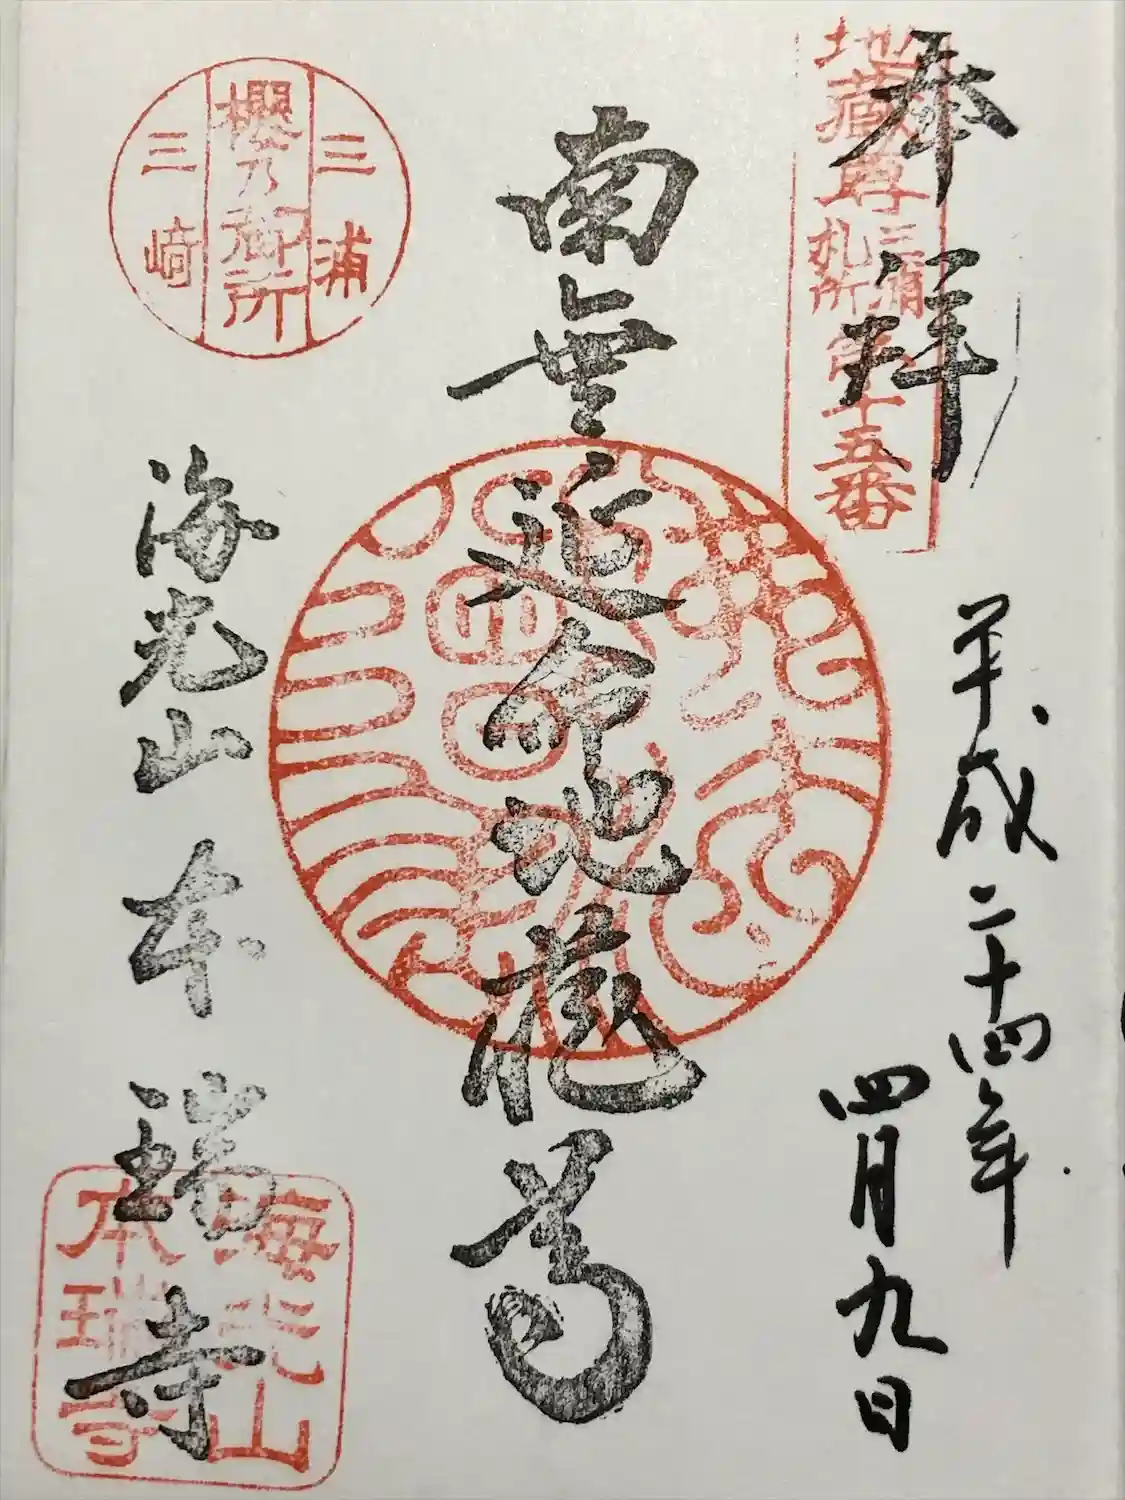 奉拝
地蔵尊
三浦
札所
第十五番
平成二十四年
四月九日
南無延命地蔵尊
三浦
櫻乃御所
三崎
海光山本瑞寺
海光山
本瑞寺